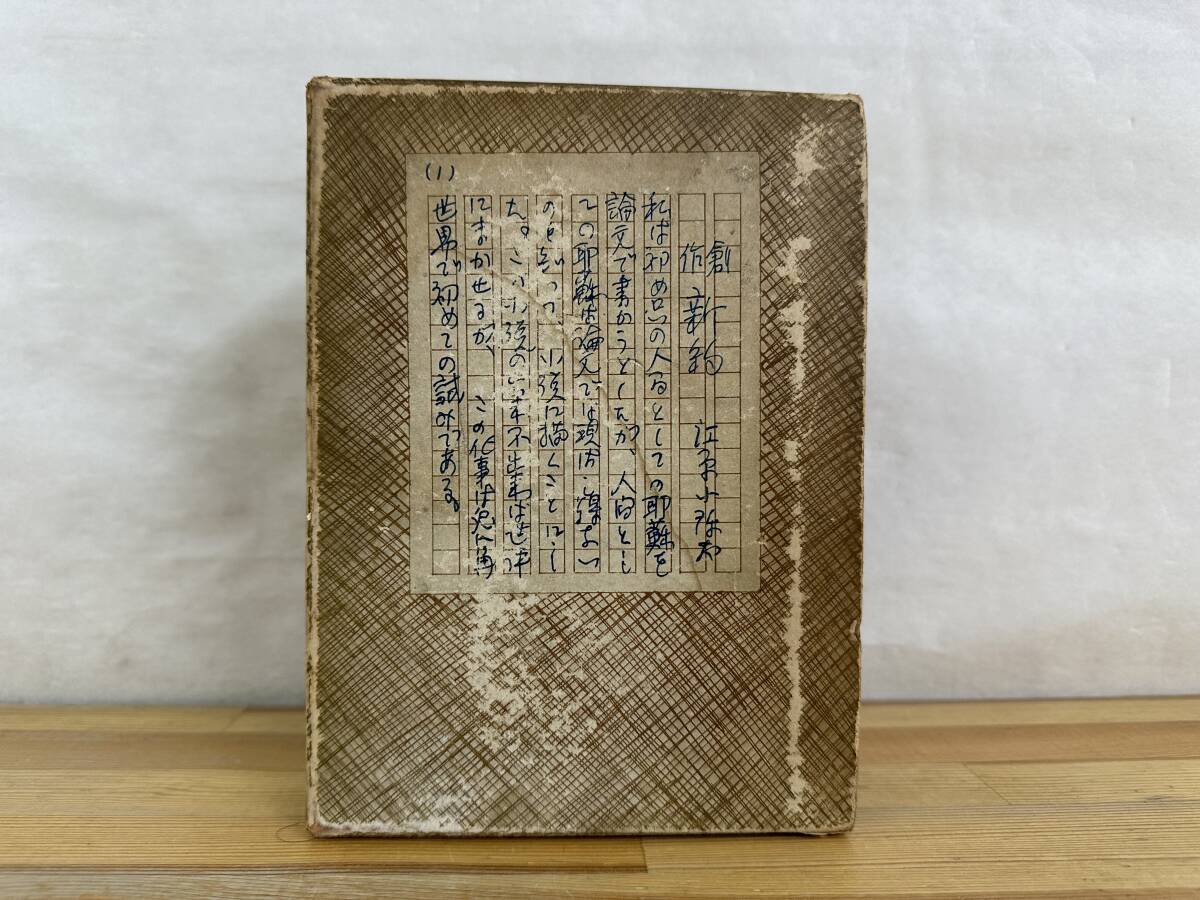 (1)
創作 新約 江原小弥太
私は初め只の人間としての耶蘇を
論文で書かうとしたが、人間とし
ての耶蘇は論文では現はし得ない
のを知つて、小説に描くことにし
た。この小説の出来不出来は世評
にまかせるが、この仕事は兎に角
世界で初めての試みである。